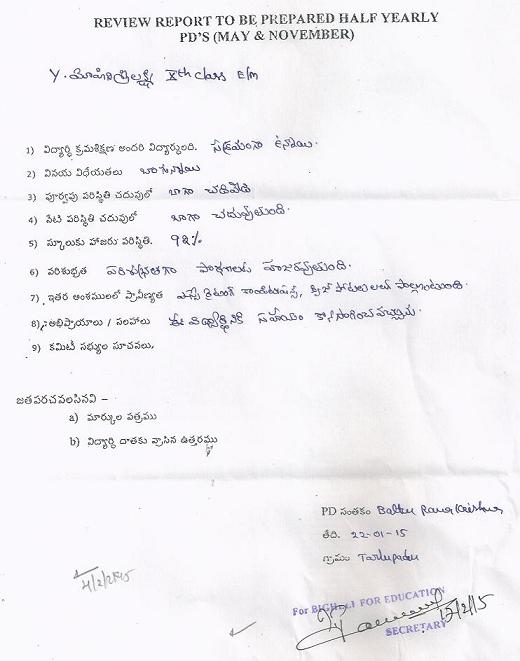 REVIEW REPORT TO BE PREPARED HALF YEARLY
PD'S (MAY & NOVEMBER)
Y. Xth class E/m
1) విద్యార్థి క్రమశిక్షణ అందరి విద్యార్థులది. సక్రమంగా ఉన్నాయి.
2) వినయ విధేయతలు బాగున్నాయి
3) పూర్వపు పరిస్థితి చదువులో బాగా చదివేది
4) నేటి పరిస్థితి చదువులో బాగా చదువుతుంది.
5) స్కూలుకు హాజరు పరిస్థితి. 92%
6) పరిశుభ్రత పరిశుభ్రతగా పాఠశాలకు హాజరవుతుంది.
7) ఇతర అంశములలో ప్రావీణ్యత ఎస్సే రైటింగ్ క్విజ్ పోటీలలో పాల్గొంటుంది.
8) అభిప్రాయాలు / సలహాలు ఈ విద్యార్థినికి సహాయం కొనసాగించవచ్చును.
9) కమిటీ సభ్యుల సూచనలు.
జతపరచవలసినవి –
a) మార్కుల పత్రము
b) విద్యార్థి దాతకు వ్రాసిన ఉత్తరము
PD సంతకం Rama Krishna
తేది. 22-01-15
గ్రామం Tarlupadu
For BIGHELP FOR EDUCATION
12/2/15
SECRETARY